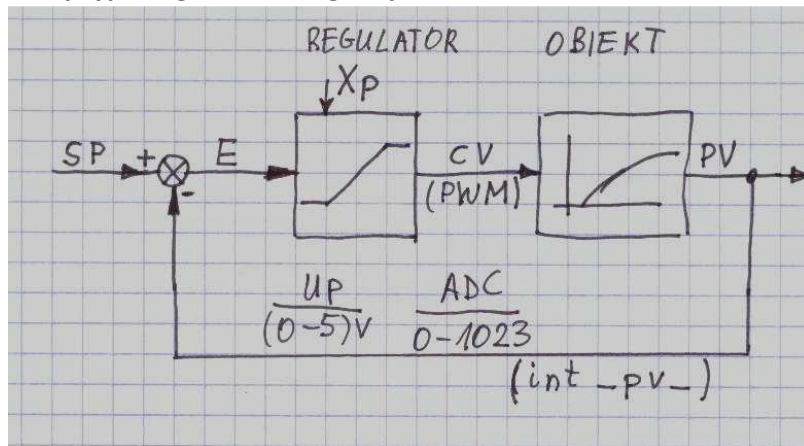 REGULATOR OBIEKT
Xp
SP + E CV PV
- (PWM)
UP ADC
(0-5)V 0-1023
(int _pv_)